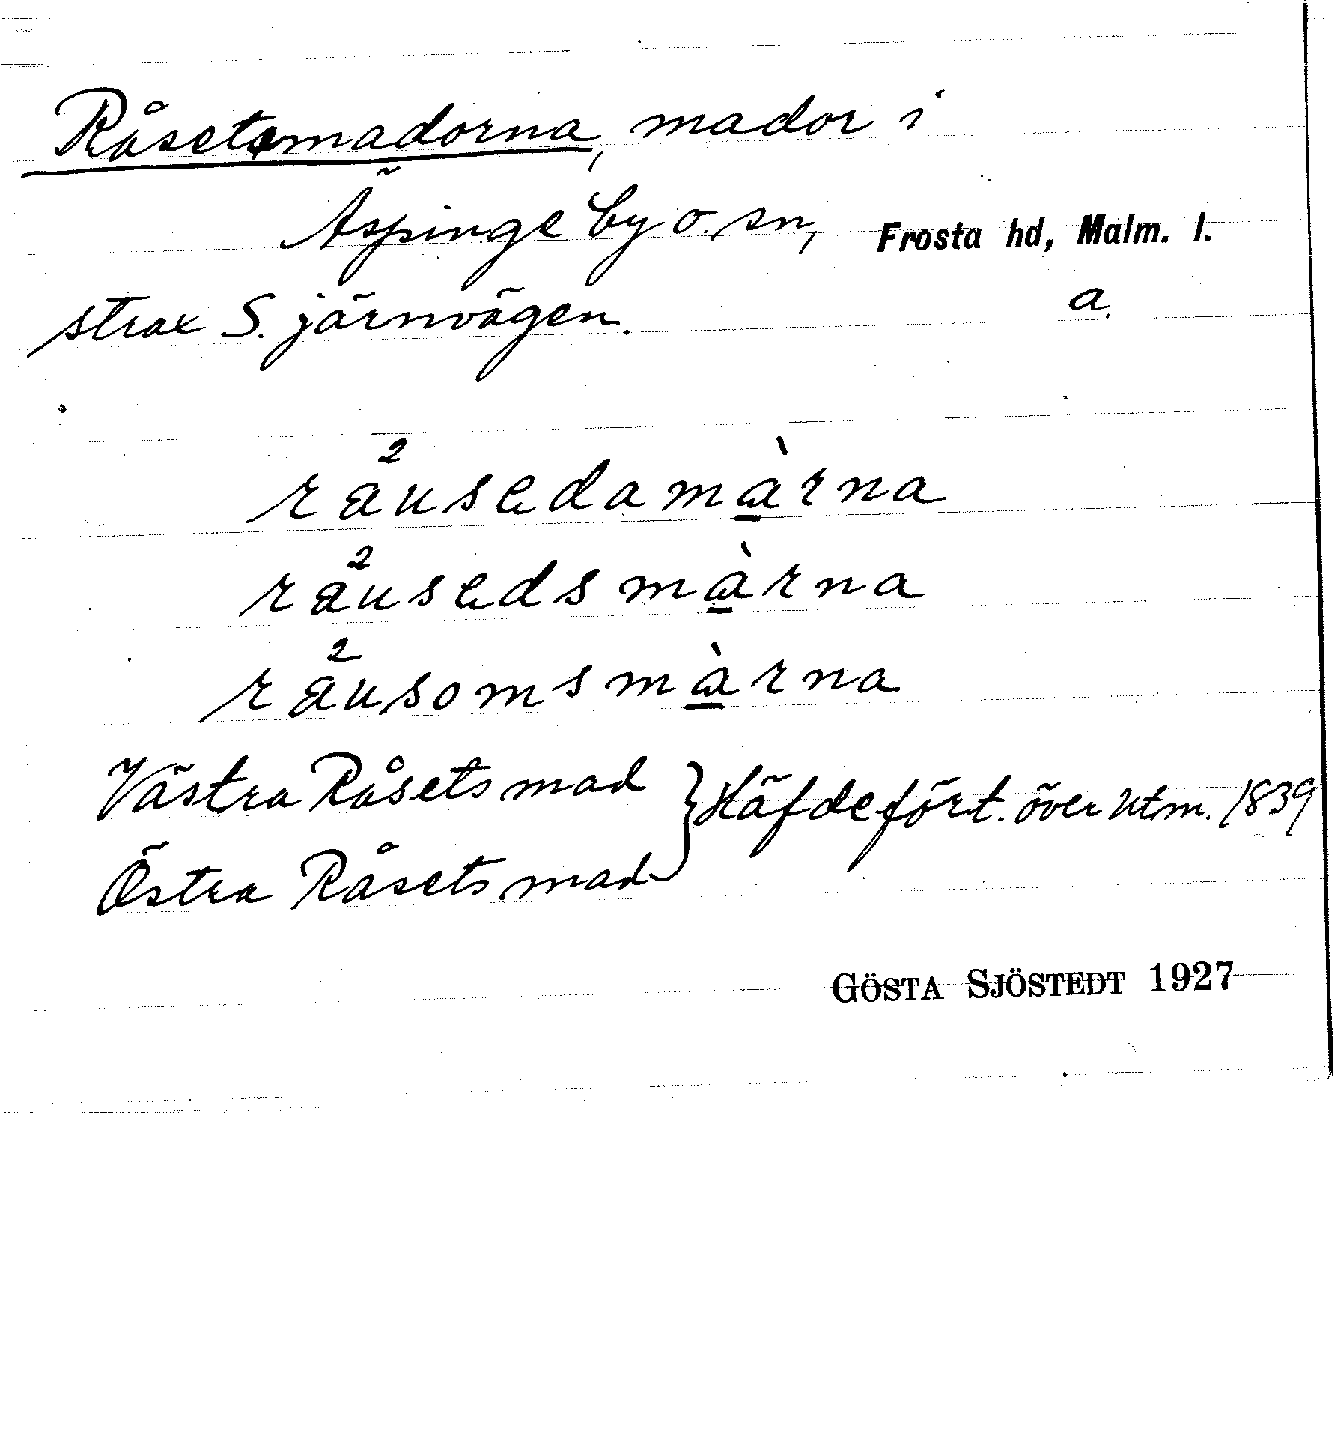 Råsetsmadorna, mador i
Äspinge by o. sn, Frosta hd, Malm. l.
strax S. järnvägen. a.
råusedamàrna
råusedsmàrna
råusomsmàrna
Västra Råsets mad } Häfdefört. över Utm. 1839
Östra Råsets mad
GÖSTA SJÖSTEDT 1927